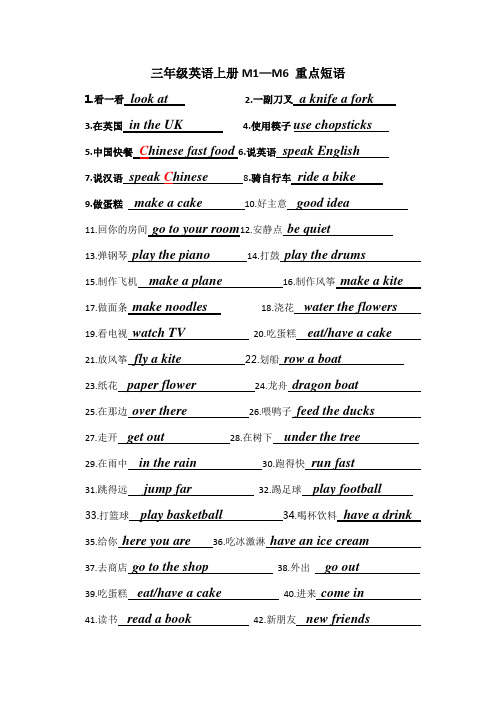 三年级英语上册M1—M6 重点短语
1.看一看 look at 2.一副刀叉 a knife a fork
3.在英国 in the UK 4.使用筷子 use chopsticks
5.中国快餐 Chinese fast food 6.说英语 speak English
7.说汉语 speak Chinese 8.骑自行车 ride a bike
9.做蛋糕 make a cake 10.好主意 good idea
11.回你的房间 go to your room 12.安静点 be quiet
13.弹钢琴 play the piano 14.打鼓 play the drums
15.制作飞机 make a plane 16.制作风筝 make a kite
17.做面条 make noodles 18.浇花 water the flowers
19.看电视 watch TV 20.吃蛋糕 eat/have a cake
21.放风筝 fly a kite 22.划船 row a boat
23.纸花 paper flower 24.龙舟 dragon boat
25.在那边 over there 26.喂鸭子 feed the ducks
27.走开 get out 28.在树下 under the tree
29.在雨中 in the rain 30.跑得快 run fast
31.跳得远 jump far 32.踢足球 play football
33.打篮球 play basketball 34.喝杯饮料 have a drink
35.给你 here you are 36.吃冰激淋 have an ice cream
37.去商店 go to the shop 38.外出 go out
39.吃蛋糕 eat/have a cake 40.进来 come in
41.读书 read a book 42.新朋友 new friends